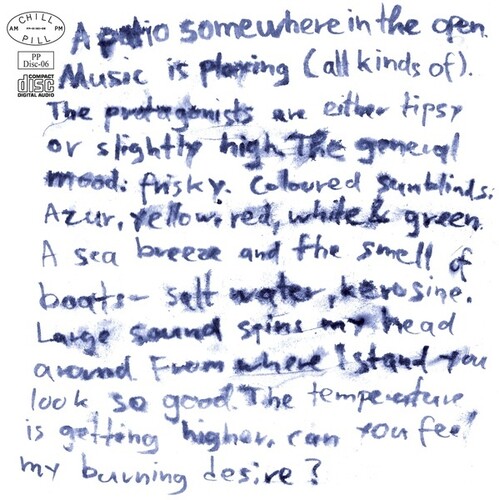 CHILL
AM PM
PILL
PP
Disc-06
COMPACT
disc
DIGITAL AUDIO
A patio somewhere in the open.
Music is playing (all kinds of).
The protagonists are either tipsy
or slightly high. The general
mood: frisky. Coloured sunblinds:
Azur, yellow, red, white & green.
A sea breeze and the smell of
boats- salt water, kerosine.
Large sound spins my head
around. From where I stand you
look so good. The temperature
is getting higher. can you feel
my burning desire?